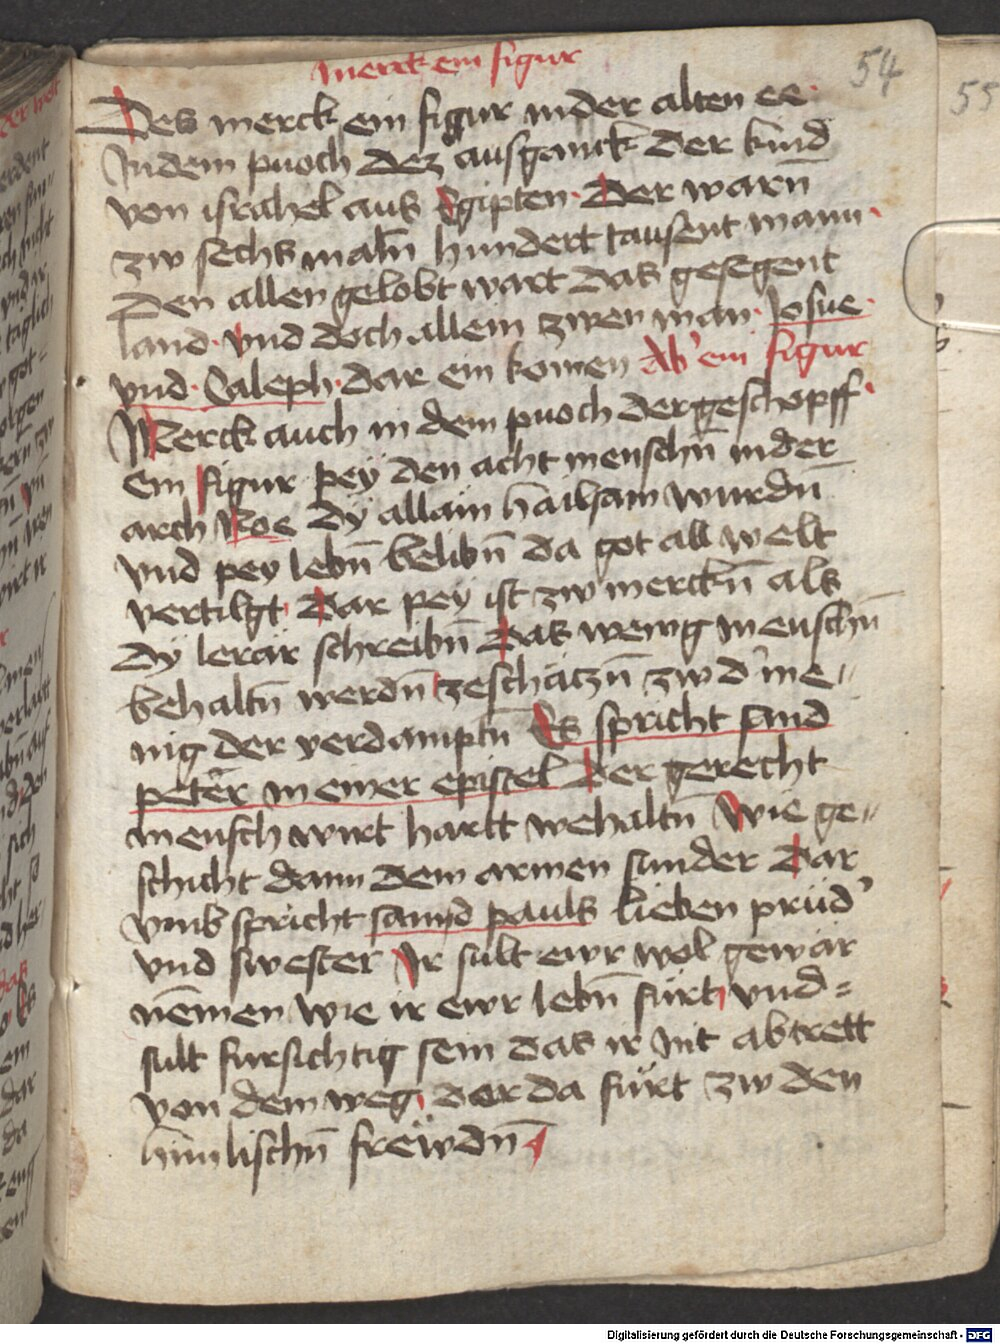 merck ein figur
54
Des merck ein figur in der alten ee
In dem puoch dez ausganck der kind
von israhel aus Egipten. Der warn̄
zw sechs maln̄ hundert tausent mann.
Den allen gelobt wart das gesegent
land. vnd doch allein zwen man. Josue.
vnd. Caleph. dar ein komen Ab' ein figur
Merck auch in dem puoch der geschopff.
Ein figur pey den acht menschn̄ in der
arch Noe dÿ allain hailsam wurdn̄
vnd pey lebn̄ belibn̄ da got all welt
vertilgt. Dar pey ist zw merckn̄ als
dÿ lerär schreibn̄ Das wenig menschn̄
behaltn̄ werdn̄ zeschäczn̄ zw d' me„
nig der verdamptn̄ Es spricht sand
peter in einer epistel Der gerecht
mensch wirt hartt wehaltn̄ Wie ge„
schicht dann dem armen sunder Dar
vmb spricht sannd pauls lieben prüd'
vnd swester Ir sult ewr wol gewar
nēmen wie ir ewr lebn̄ fürt, vnd=
sult fursichtig sein das ir nit abtrett
von dem weg, der da fürt zw den
himlischn̄ frëwdn̄
55
Digitalisierung gefördert durch die Deutsche Forschungsgemeinschaft - DFG